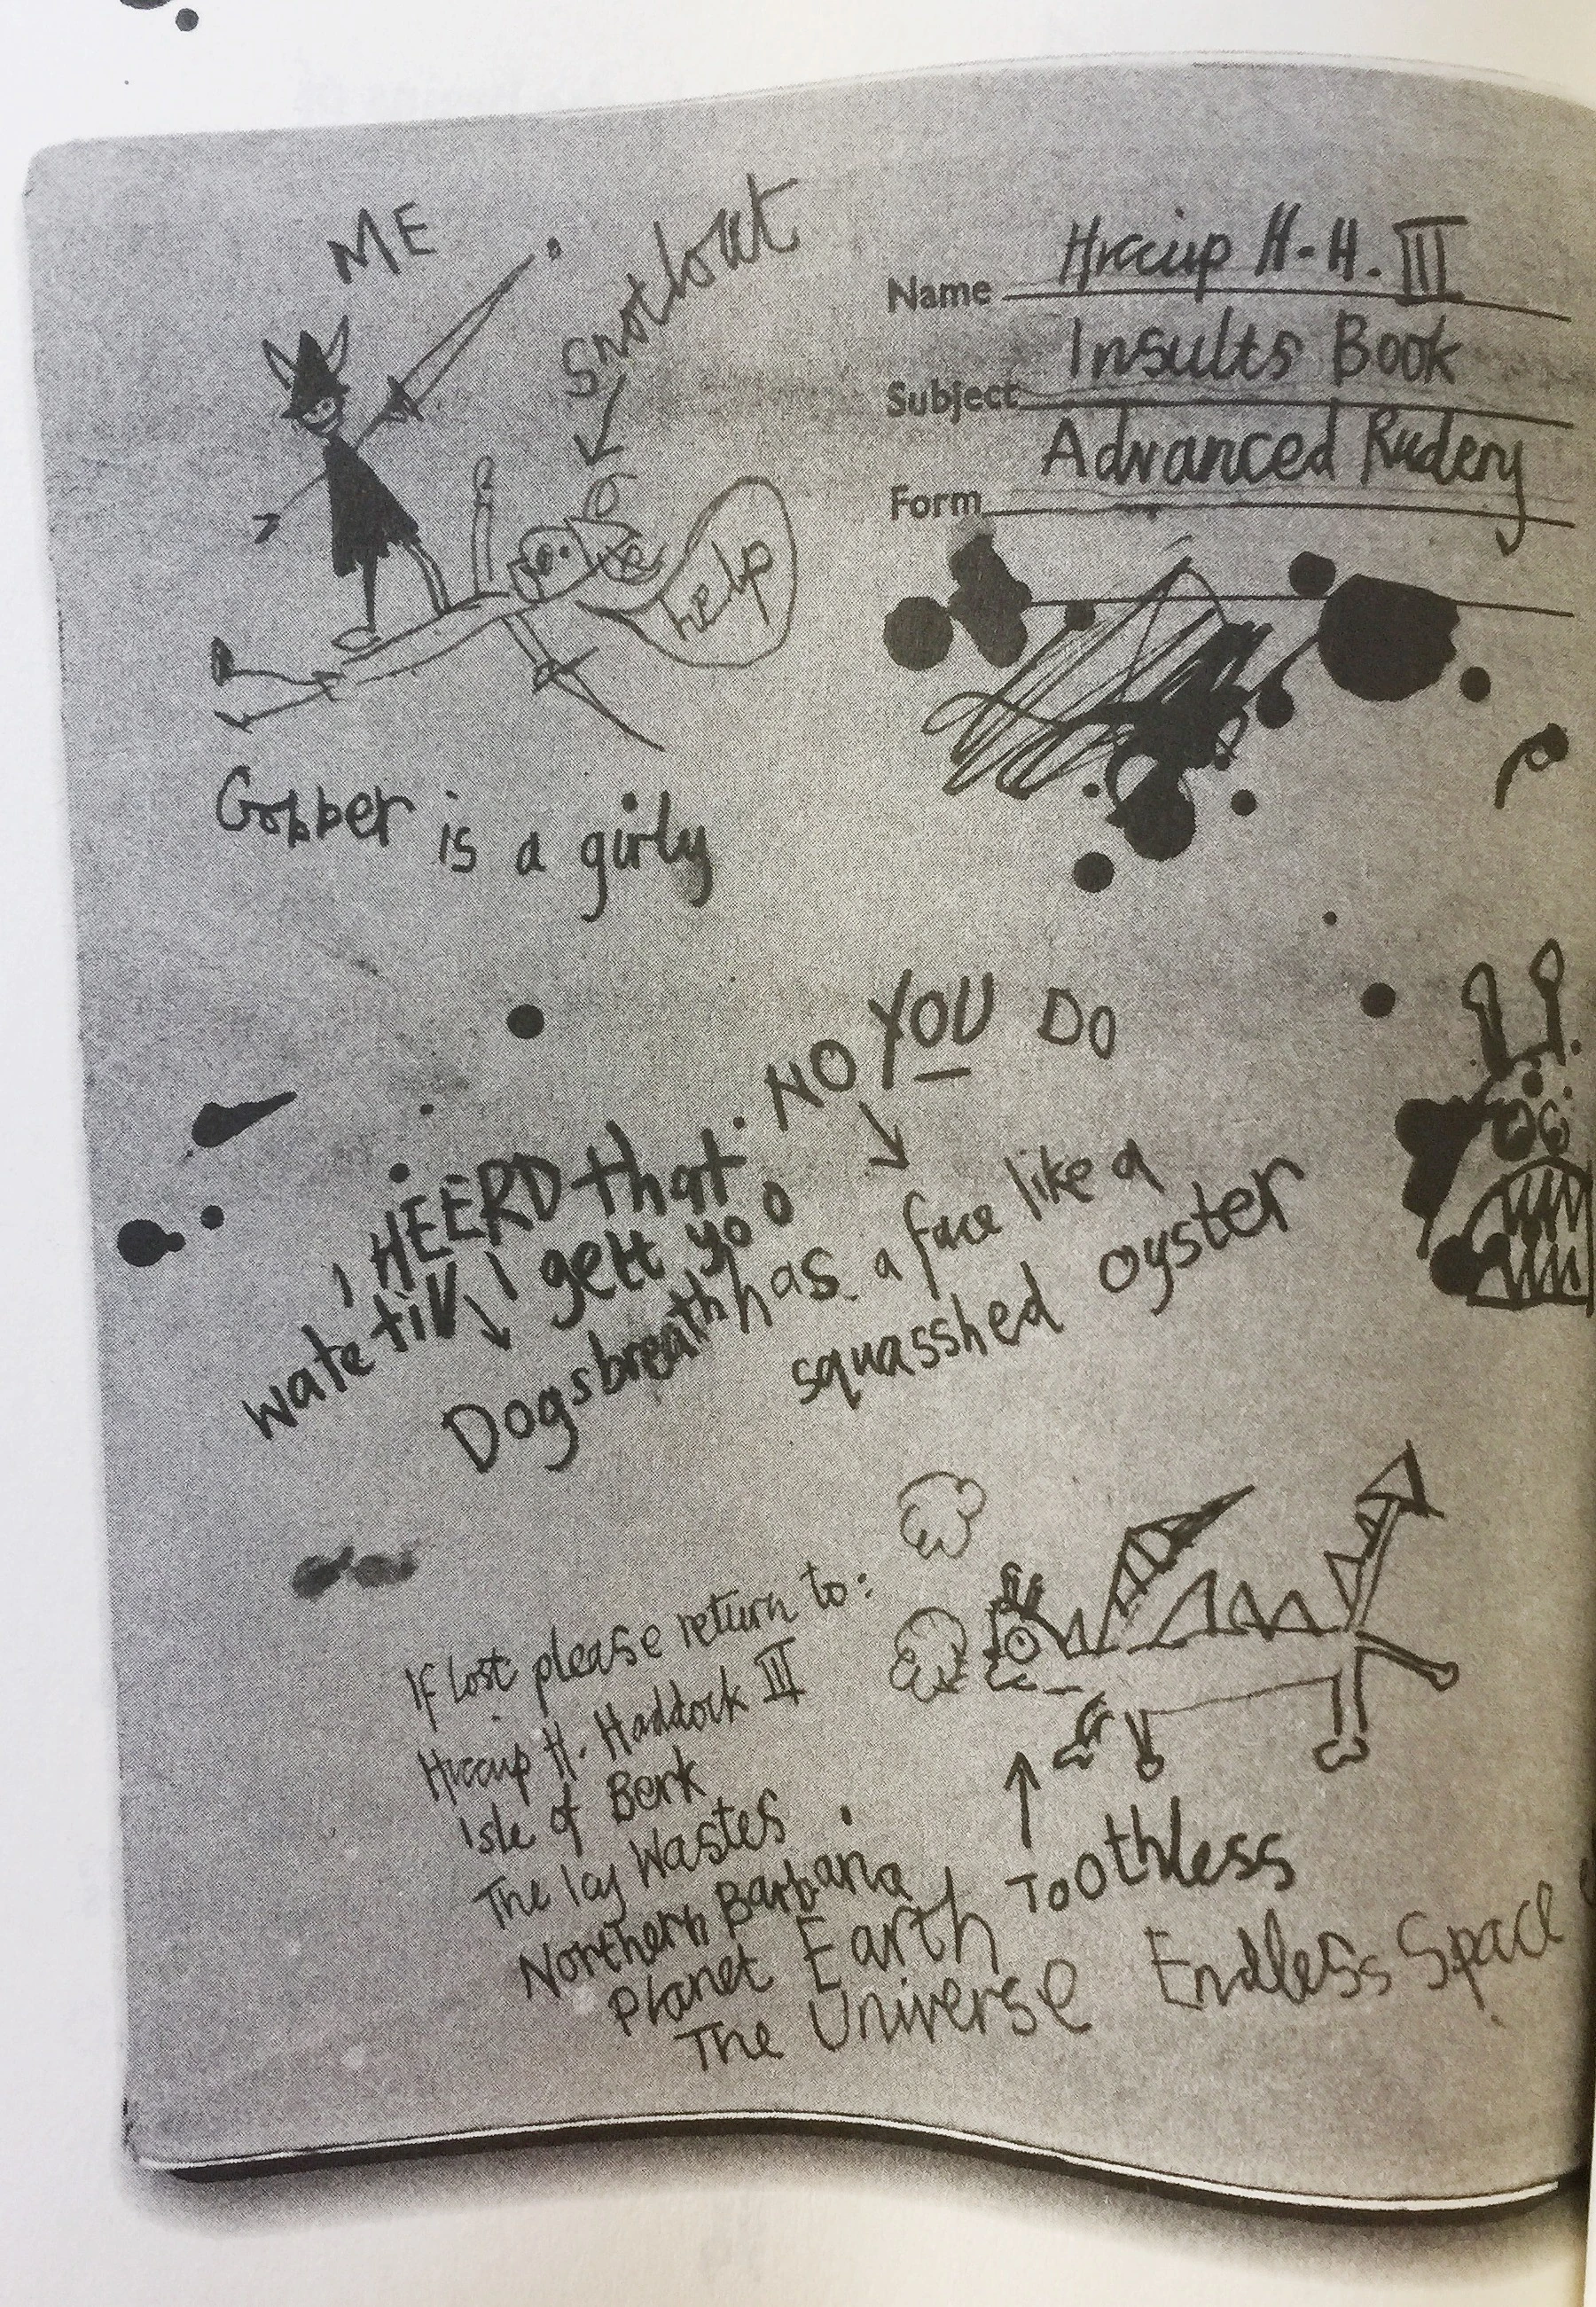 ME
Snotlout
Name Hiccup H-H. III
Subject Insults Book
Form Advanced Rudery
help
Gobber is a girly
NO YOU DO
I HEERD that.
wate till I gett yooo
Dogsbreath has a face like a
squasshed oyster
If Lost please return to:
Hiccup H. Haddock III
Isle of Berk
The Icy Wastes
Northern Barbaria
Toothless
Planet Earth
The Universe Endless Space